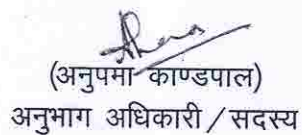 (अनुपमा काण्डपाल)
अनुभाग अधिकारी / सदस्य